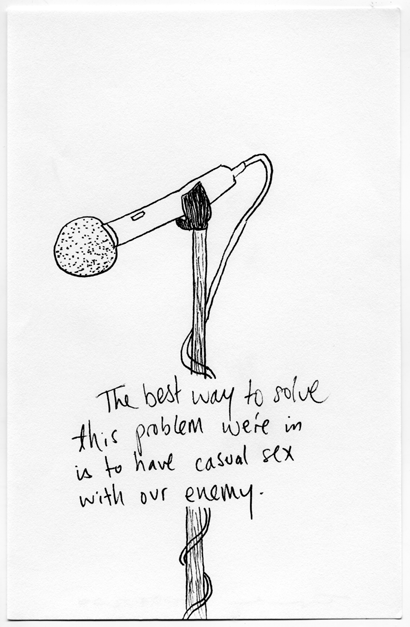 The best way to solve
this problem we're in
is to have casual sex
with our enemy.